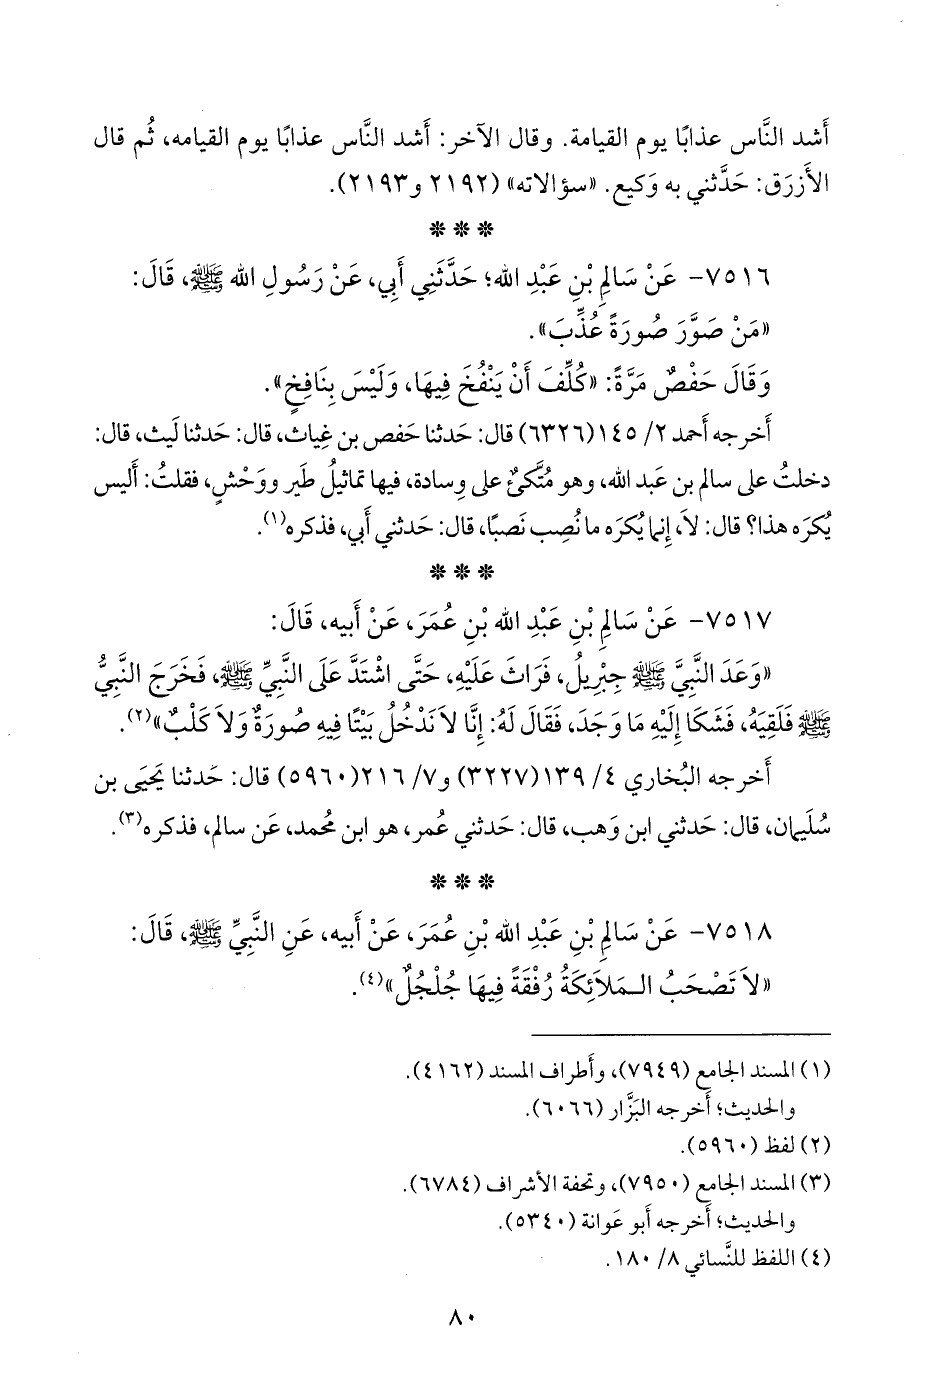 أَشد النَّاس عذابًا يوم القيامة. وقال الآخر: أَشد النَّاس عذابًا يوم القيامه، ثُم قال
الأَزرَق: حَدَّثني به وَكيع. «سؤالاته» (٢١٩٢ و٢١٩٣).
* * *
٧٥١٦- عَنْ سَالِمِ بْنِ عَبْدِ الله؛ حَدَّثَنِي أَبِي، عَنْ رَسُولِ الله ﷺ، قَالَ:
«مَنْ صَوَّرَ صُورَةً عُذِّبَ».
وَقَالَ حَفْصٌ مَرَّةً: «كُلِّفَ أَنْ يَنْفُخَ فِيهَا، وَلَيْسَ بِنَافِخٍ».
أَخرجه أَحمد ٢/ ١٤٥ (٦٣٢٦) قال: حَدثنا حَفص بن غِياث، قال: حَدثنا لَيث، قال:
دخلتُ على سالم بن عَبد الله، وهو مُتَّكئٌ على وِسادة، فيها تماثيلُ طَير ووَحْشٍ، فقلتُ: أَليس
يُكرَه هذا؟ قال: لاَ، إِنما يُكرَه ما نُصِب نَصبًا، قال: حَدثني أَبي، فذكره(١).
* * *
٧٥١٧- عَنْ سَالِمِ بْنِ عَبْدِ الله بْنِ عُمَرَ، عَنْ أَبيه، قَالَ:
«وَعَدَ النَّبِيَّ ﷺ جِبْرِيلُ، فَرَاثَ عَلَيْهِ، حَتَّى اشْتَدَّ عَلَى النَّبِيِّ ﷺ، فَخَرَجَ النَّبِيُّ
ﷺ فَلَقِيَهُ، فَشَكَا إِلَيْهِ مَا وَجَدَ، فَقَالَ لَهُ: إِنَّا لاَ نَدْخُلُ بَيْتًا فِيهِ صُورَةٌ وَلاَ كَلْبٌ»(٢).
أَخرجه البُخاري ٤/ ١٣٩ (٣٢٢٧) و٧/ ٢١٦ (٥٩٦٠) قال: حَدثنا يَحيَى بن
سُلَيمان، قال: حَدثني ابن وَهب، قال: حَدثني عُمر، هو ابن مُحمد، عَن سالم، فذكره(٣).
* * *
٧٥١٨- عَنْ سَالِمِ بْنِ عَبْدِ الله بْنِ عُمَرَ، عَنْ أَبيه، عَنِ النَّبِيِّ ﷺ، قَالَ:
«لاَ تَصْحَبُ الـمَلاَئِكَةُ رُفْقَةً فِيهَا جُلْجُلٌ»(٤).
(١) المسند الجامع (٧٩٤٩)، وأَطراف المسند (٤١٦٢).
والحديث؛ أَخرجه البَزَّار (٦٠٦٦).
(٢) لفظ (٥٩٦٠).
(٣) المسند الجامع (٧٩٥٠)، وتحفة الأشراف (٦٧٨٤).
والحديث؛ أَخرجه أَبو عَوانة (٥٣٤٠).
(٤) اللفظ للنَّسائي ٨/ ١٨٠.
٨٠